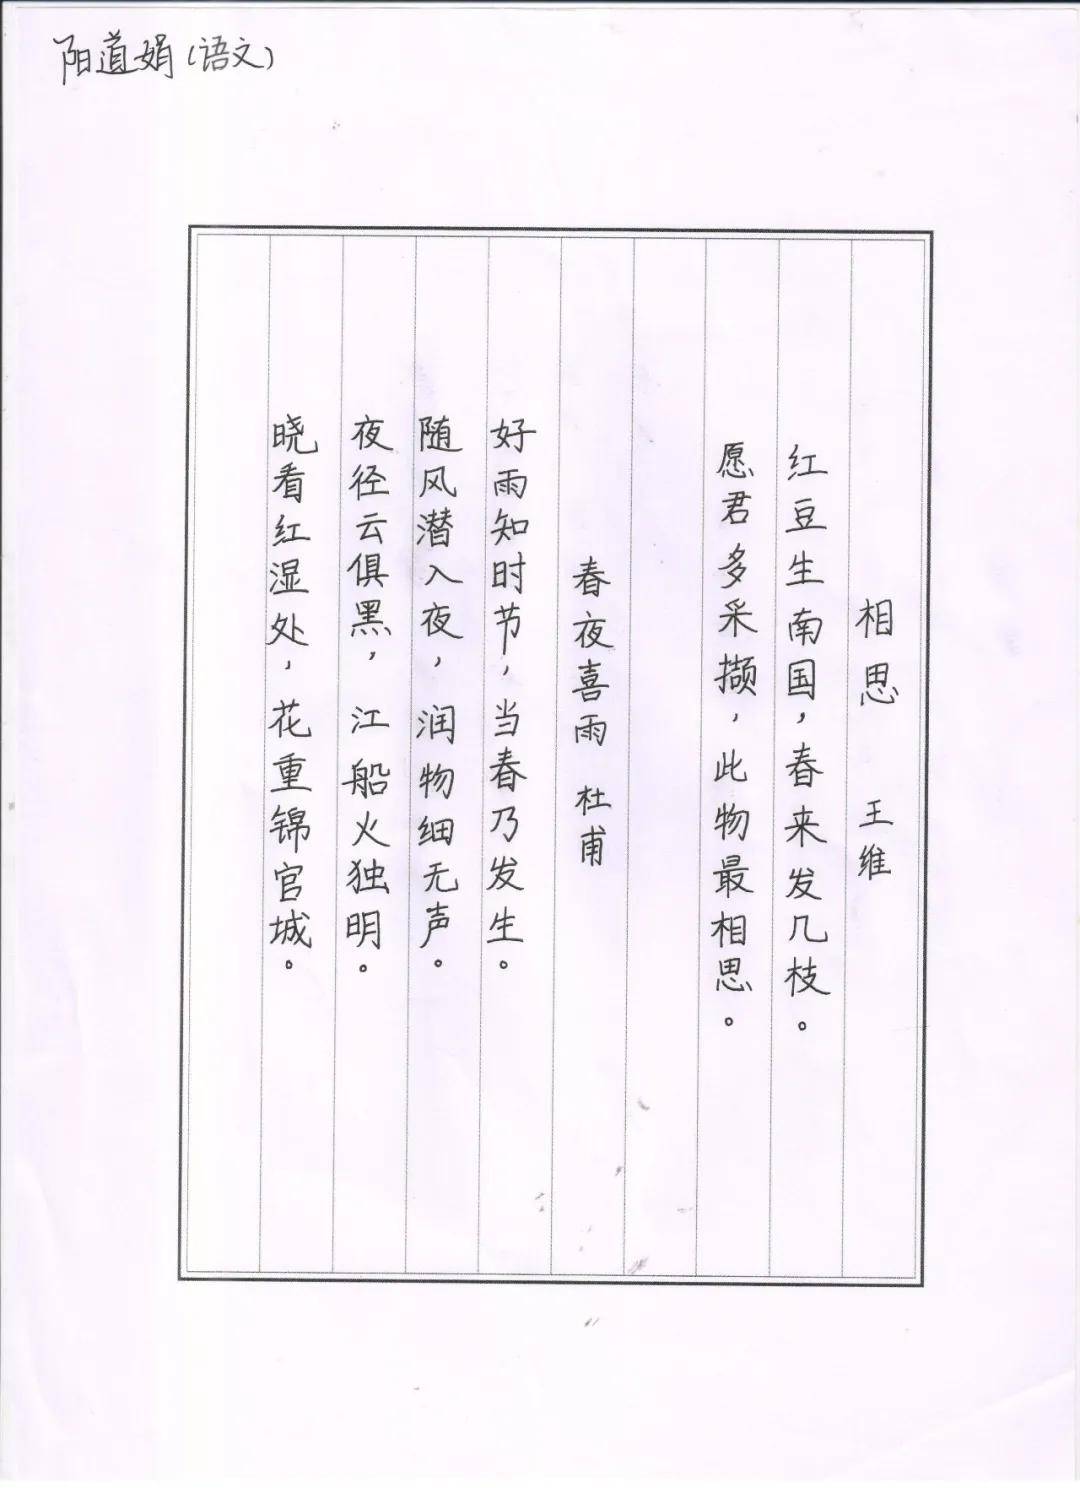 阳道娟（语文）
相思 王维
红豆生南国，春来发几枝。
愿君多采撷，此物最相思。
春夜喜雨 杜甫
好雨知时节，当春乃发生。
随风潜入夜，润物细无声。
夜径云俱黑，江船火独明。
晓看红湿处，花重锦官城。